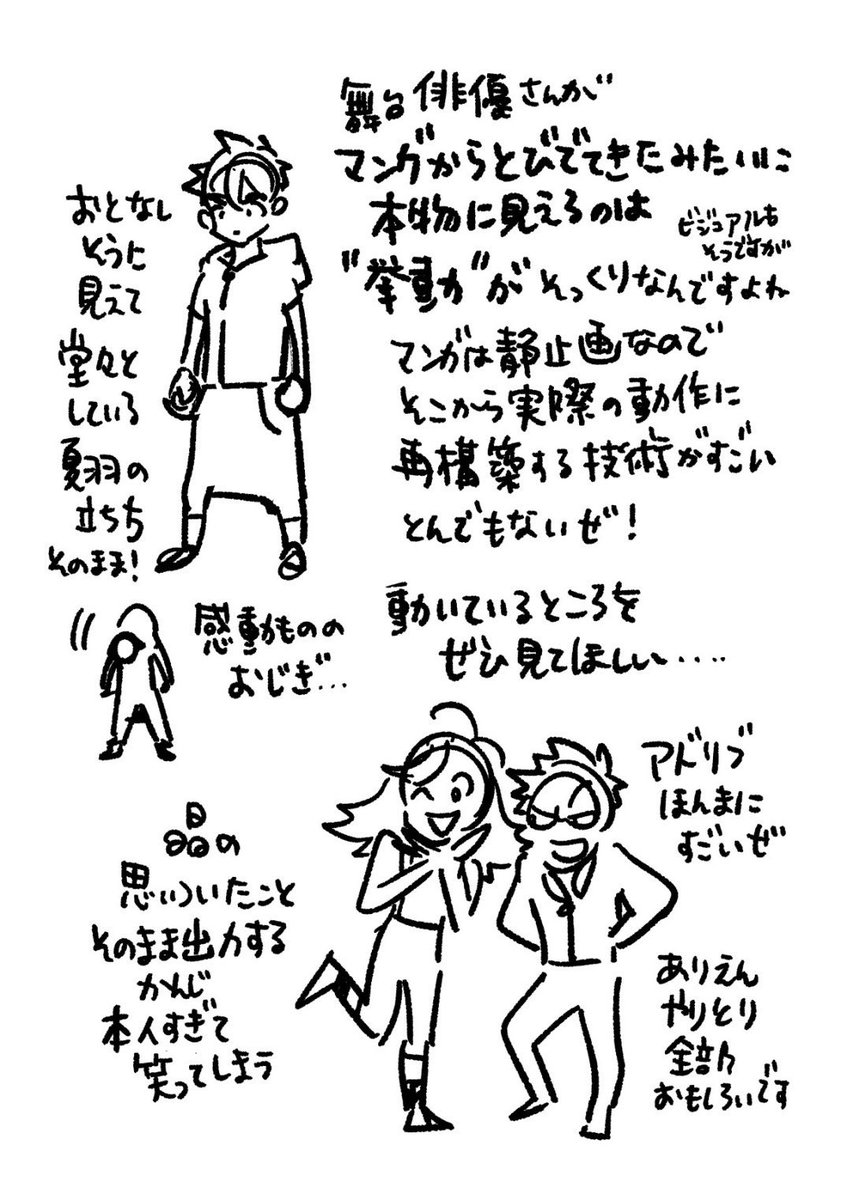 舞台俳優さんが
マンガからとびでてきたみたいに
本物に見えるのは
ビジュアルも
そうですが
"挙動"がそっくりなんですよね
マンガは静止画なので
そこから実際の動作に
再構築する技術がすごい
とんでもないぜ!
おとなし
そうに
見えて
堂々と
している
夏羽の
立ち方
そのまま!
動いているところを
ぜひ見てほしい・・・・
感動ものの
おじぎ…
アドリブ
ほんまに
すごいぜ
晶の
思いついたこと
そのまま出力する
かんじ
本人すぎて
笑ってしまう
ありえん
やりとり
全部
おもしろいです